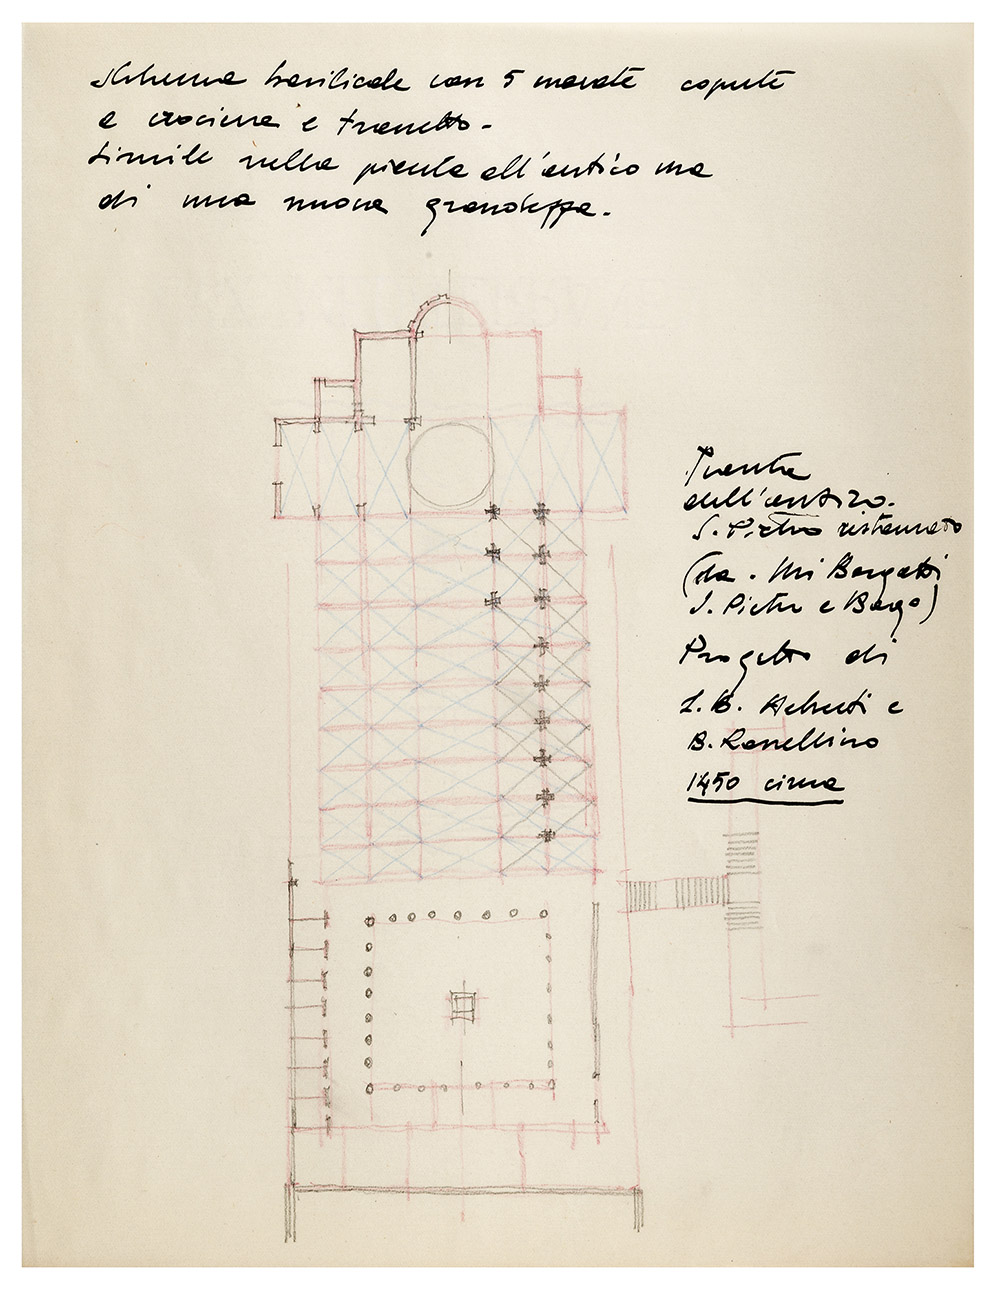 Schema basilicale con 5 navate coperte
a crociera e transetto -
Simile nella pianta all'antico ma
di una nuova grandezza.
Pianta
dell'antico
S. Pietro restaurato
(da . Borgatti
S. Pietro e Borgo)
Progetto di
L. B. Alberti e
B. Rossellino
1450 circa